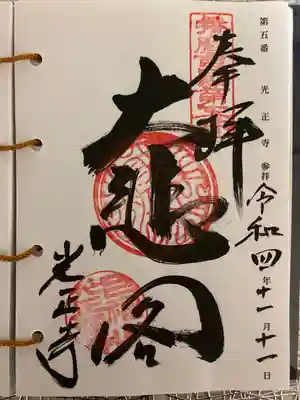 第五番 光正寺 参拝 令和四年十一月十一日
奉拝
大悲閣
光正寺